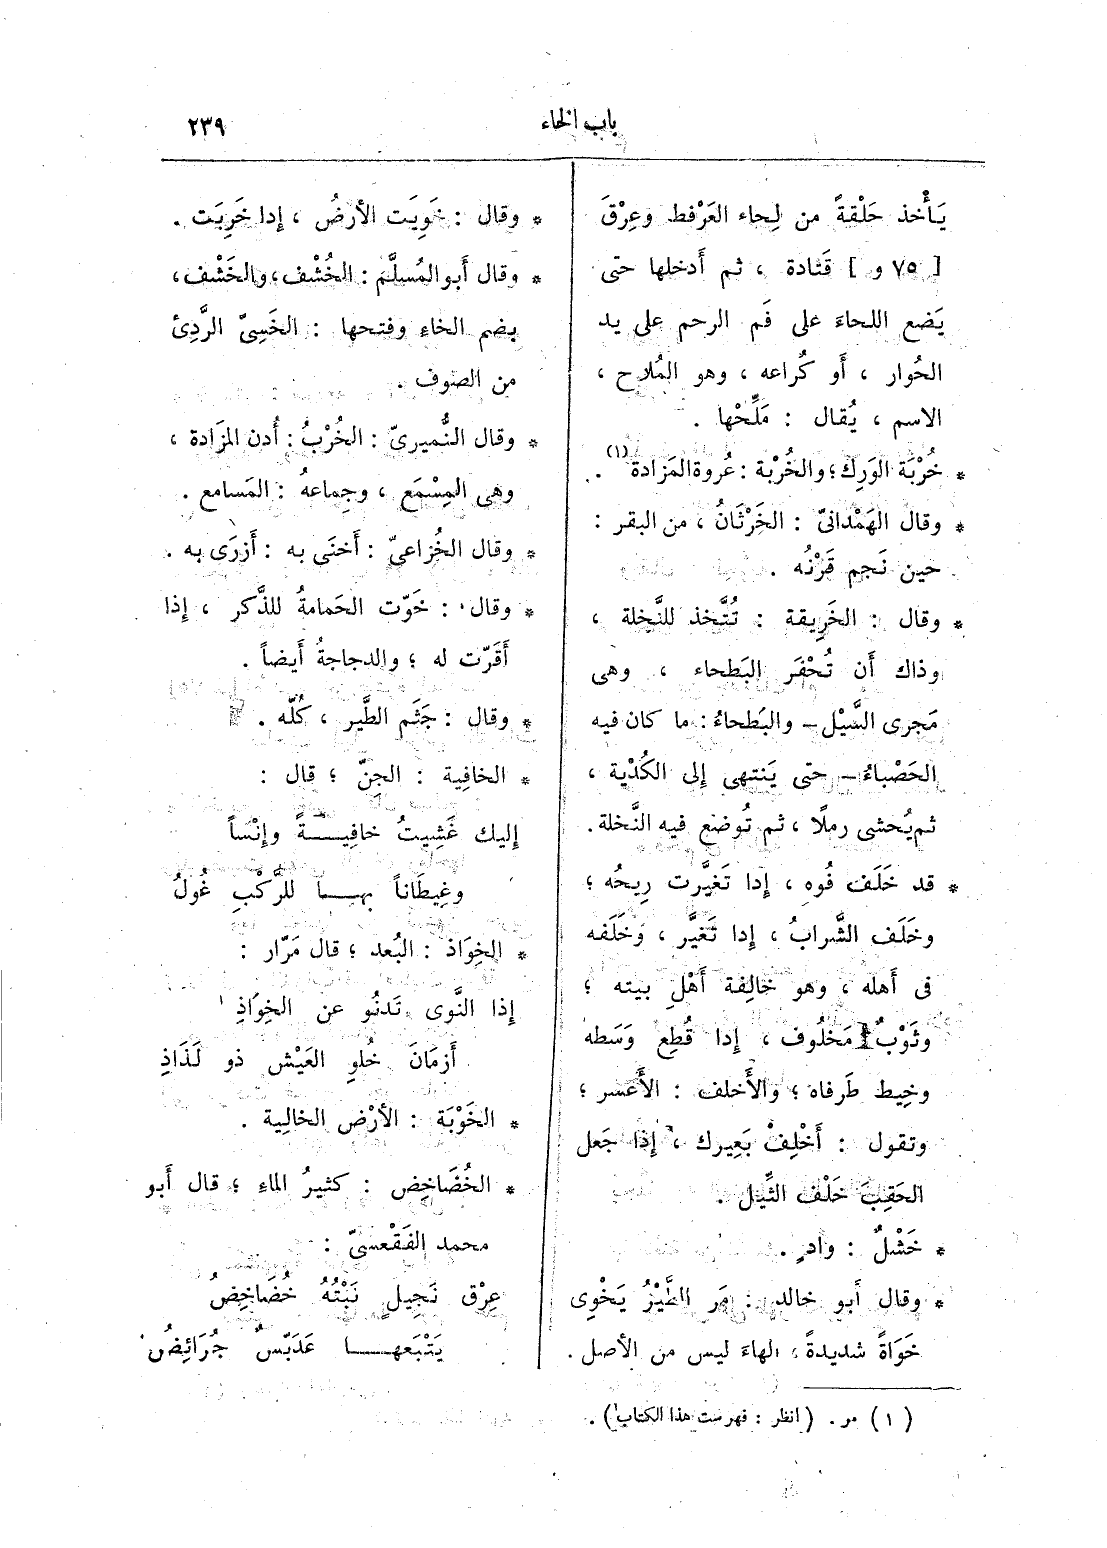 باب الخاء
٢٣٩
يَأْخذ حَلْقةً من لِحاء العَرْفط وعِرْقَ
[ ٧٥ و ] قَتادة ، ثم أَدخلها حتى
يَضع اللحاءَ على فَم الرحم على يد
الحُوار ، أَو كُراعه ، وهو المُلاح ،
الاسم ، يُقال : مَلِّحْها .
* خُرْبَة الوَرِك ؛ والخُرْبة : عُروة المَزادة (١) .
* وقال الهَمْدانىّ : الخَرْثَانُ ، من البقر :
حين نَجم قَرْنُه .
* وقال : الخَرِيقة : تُتَّخذ للنَّخلة ،
وذاك أَن تُحْفَر البَطحاء ، وهى
مَجرى السَّيْل – والبَطحاءُ : ما كان فيه
الحَصْباءُ – حتى يَنتهى إلى الكُدْية ،
ثم يُحشى رملًا ، ثم تُوضع فيه النَّخلة .
* قد خَلَف فُوه ، إذا تَغيَّرت رِيحُه ؛
وخَلَف الشَّرابُ ، إذا تَغيَّر ، وخَلَفه
فى أَهله ، وهو خالِفة أَهْلِ بيته ؛
وثَوْبٌ مَخلُوف ، إذا قُطِع وَسَطه
وخِيط طَرفاه ؛ والأَخلف : الأَعْسر ؛
وتقول : أَخْلِفْ بَعِيرك ، إذا جَعل
الحَقِبَ خَلْف الثِّيل .
* خَشْلٌ : وادٍ .
* وقال أَبو خالد : مَر الطَّيْرُ يَخْوِى
خَوَاةً شديدةً ، الهاءَ ليس من الأصل .
(١) مر . (انظر : فهرست هذا الكتاب) .
* وقال : خَوِيَت الأرضُ ، إذا خَرِبَت .
* وقال أَبو المُسلَّم : الخُشْف ، والخَشْف ،
بضم الخاءِ وفتحها : الخَسِىّ الرَّدِئ
من الصوف .
* وقال النُّميرىّ : الخُرْبُ : أُذن المزَادة ،
وهى المِسْمَع ، وجِماعهُ : المَسامع .
* وقال الخُزاعىّ : أَخنَى به : أَزرَى به .
* وقال : خَوّت الحَمامةُ للذَّكر ، إذا
أَقَرّت له ؛ والدجاجةُ أَيضاً .
* وقال : جَثَم الطَّير ، كُلّه .
* الخافِية : الجِنّ ؛ قال :
إليك غَشِيتُ خافِيــةً وإنْساً
وغِيطَاناً بهــا للرَّكْبِ غُولُ
* الخِوَاذ : البُعد ؛ قال مَرّار :
إذا النَّوى تَدنُو عن الخِوَاذِ
أَزمَانَ حُلوِ العَيْش ذو لَذَاذِ
* الخَوْبَة : الأرْض الخالِية .
* الخُضَاخِض : كثيرُ الماءِ ؛ قال أَبو
محمد الفَقْعسىّ :
عِرْق نَجِيلٍ نَبْتُهُ خُضَاخِضُ
يَتْبَعهــا عَدَبّسٌ جُرَائِضُ